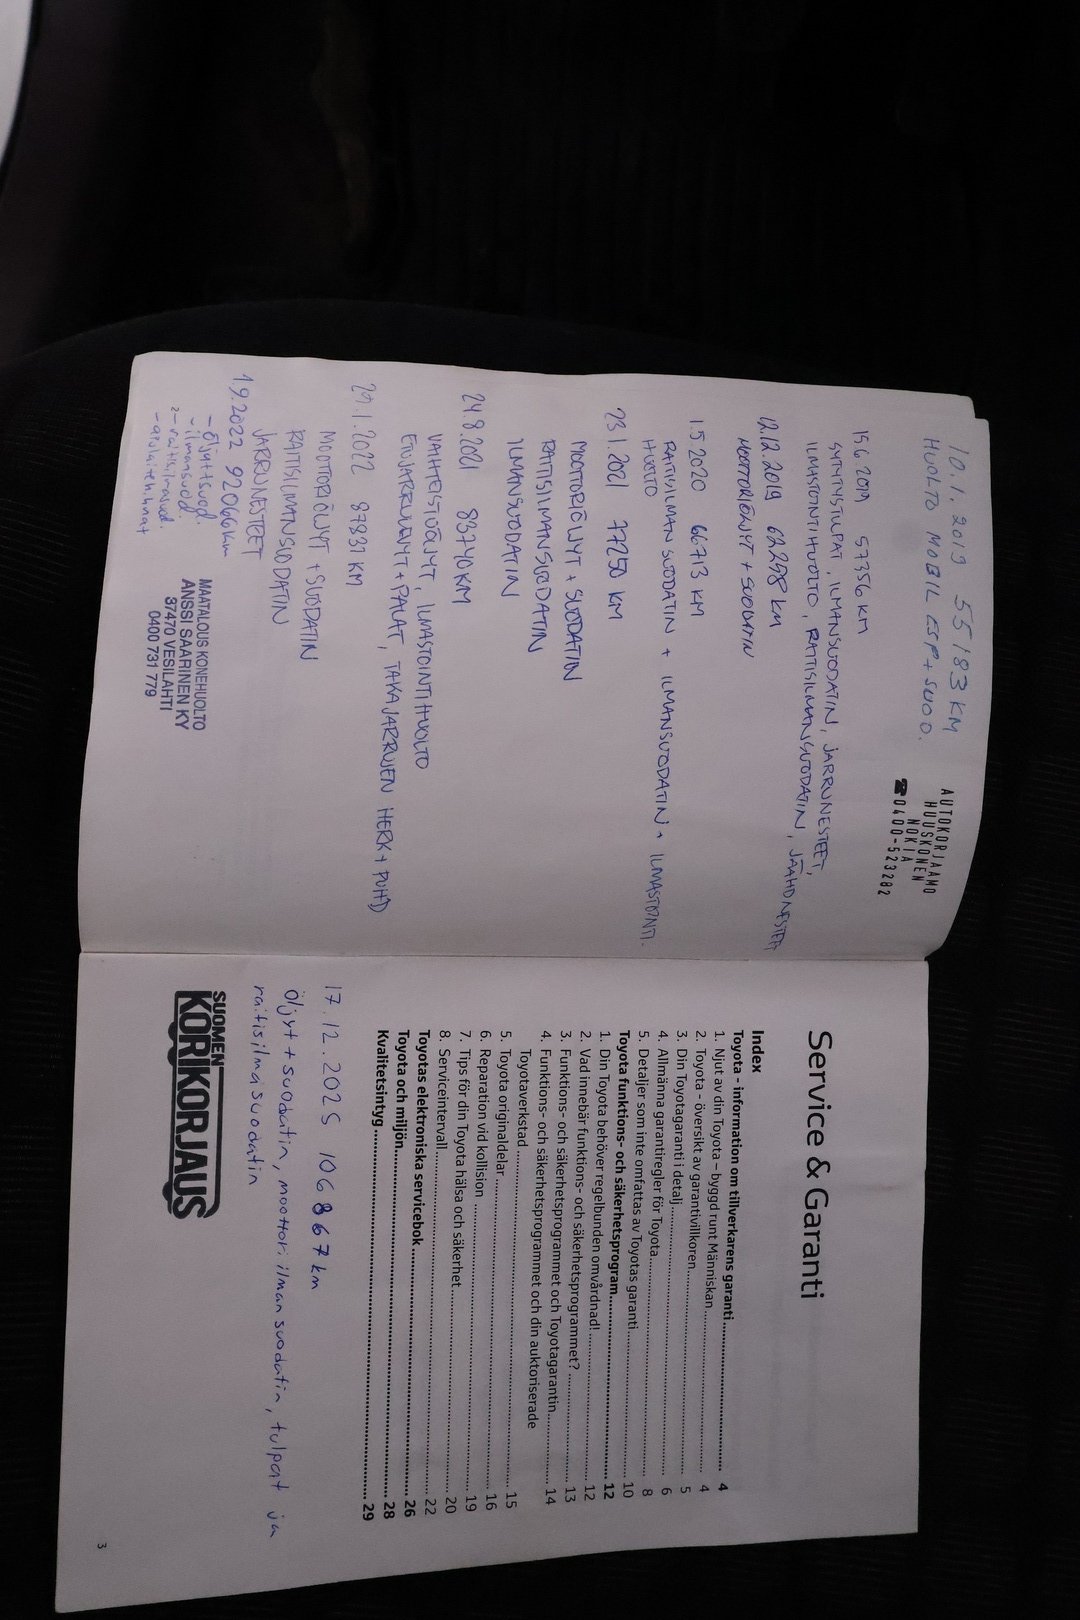 10.1.2019 55183 KM
HUOLTO MOBIL ESP + SUOD.
AUTOKORJAAMO
HUUSKONEN
NOKIA
☎0400-523282
15.6.2019 57356 KM
SYTYTYSTULPAT, ILMANSUODATIN, JARRUNESTEET,
ILMASTOINTIHUOLTO, RAITISILMANSUODATIN, JÄÄHDNESTEET
12.12.2019 62298 KM
MOOTTORIÖLJYT + SUODATIN
1.5.2020 66713 KM
RAITISILMAN SUODATIN + ILMANSUODATIN + ILMASTOINTI-
HUOLTO
23.1.2021 77250 KM
MOOTTORIÖLJYT + SUODATIN
RAITISILMANSUODATIN
ILMANSUODATIN
24.8.2021 83740 KM
VAIHTEISTOÖLJYT, ILMASTOINTIHUOLTO
ETUJARRULEVYT + PALAT, TAKAJARRUJEN HERK + PUHD
29.1.2022 87831 KM
MOOTTORIÖLJYT + SUODATIN
RAITISILMANSUODATIN
JARRUNESTEET
1.9.2022 92066 km
- öljyt+suod.
- ilmansuod
- raitisilmasuod.
- apulaitehihnat
MAATALOUS KONEHUOLTO
ANSSI SAARINEN KY
37470 VESILAHTI
0400 731 779
Service & Garanti
Index
Toyota – information om tillverkarens garanti 4
1. Njut av din Toyota – byggd runt Människan 4
2. Toyota – översikt av garantivillkoren 5
3. Din Toyotagaranti i detalj 6
4. Allmänna garantiregler för Toyota 8
5. Detaljer som inte omfattas av Toyotas garanti 10
Toyota funktions- och säkerhetsprogram 12
1. Din Toyota behöver regelbunden omvårdnad! 12
2. Vad innebär funktions- och säkerhetsprogrammet? 13
3. Funktions- och säkerhetsprogrammet och Toyotagarantin 14
4. Funktions- och säkerhetsprogrammet och din auktoriserade
Toyotaverkstad 15
5. Toyota originaldelar 16
6. Reparation vid kollision 19
7. Tips för din Toyota hälsa och säkerhet 20
8. Serviceintervall 22
Toyotas elektroniska servicebok 26
Toyota och miljön 28
Kvalitetsintyg 29
17.12.2025 106867 km
Öljyt + suodatin, moottori ilman suodatin, tulpat ja
raitisilmasuodatin
SUOMEN
KORIKORJAUS
3